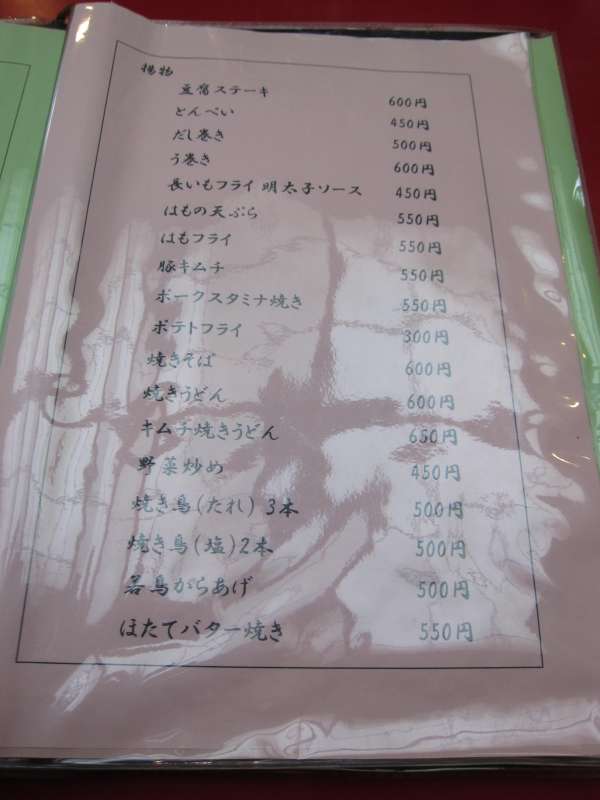 揚物
豆腐ステーキ 600円
とんぺい 450円
だし巻き 500円
う巻き 600円
長いもフライ 明太子ソース 450円
はもの天ぷら 550円
はもフライ 550円
豚キムチ 550円
ポークスタミナ焼き 550円
ポテトフライ 300円
焼きそば 600円
焼きうどん 600円
キムチ焼きうどん 650円
野菜炒め 450円
焼き鳥(たれ) 3本 500円
焼き鳥(塩)2本 500円
若鳥からあげ 500円
ほたてバター焼き 550円